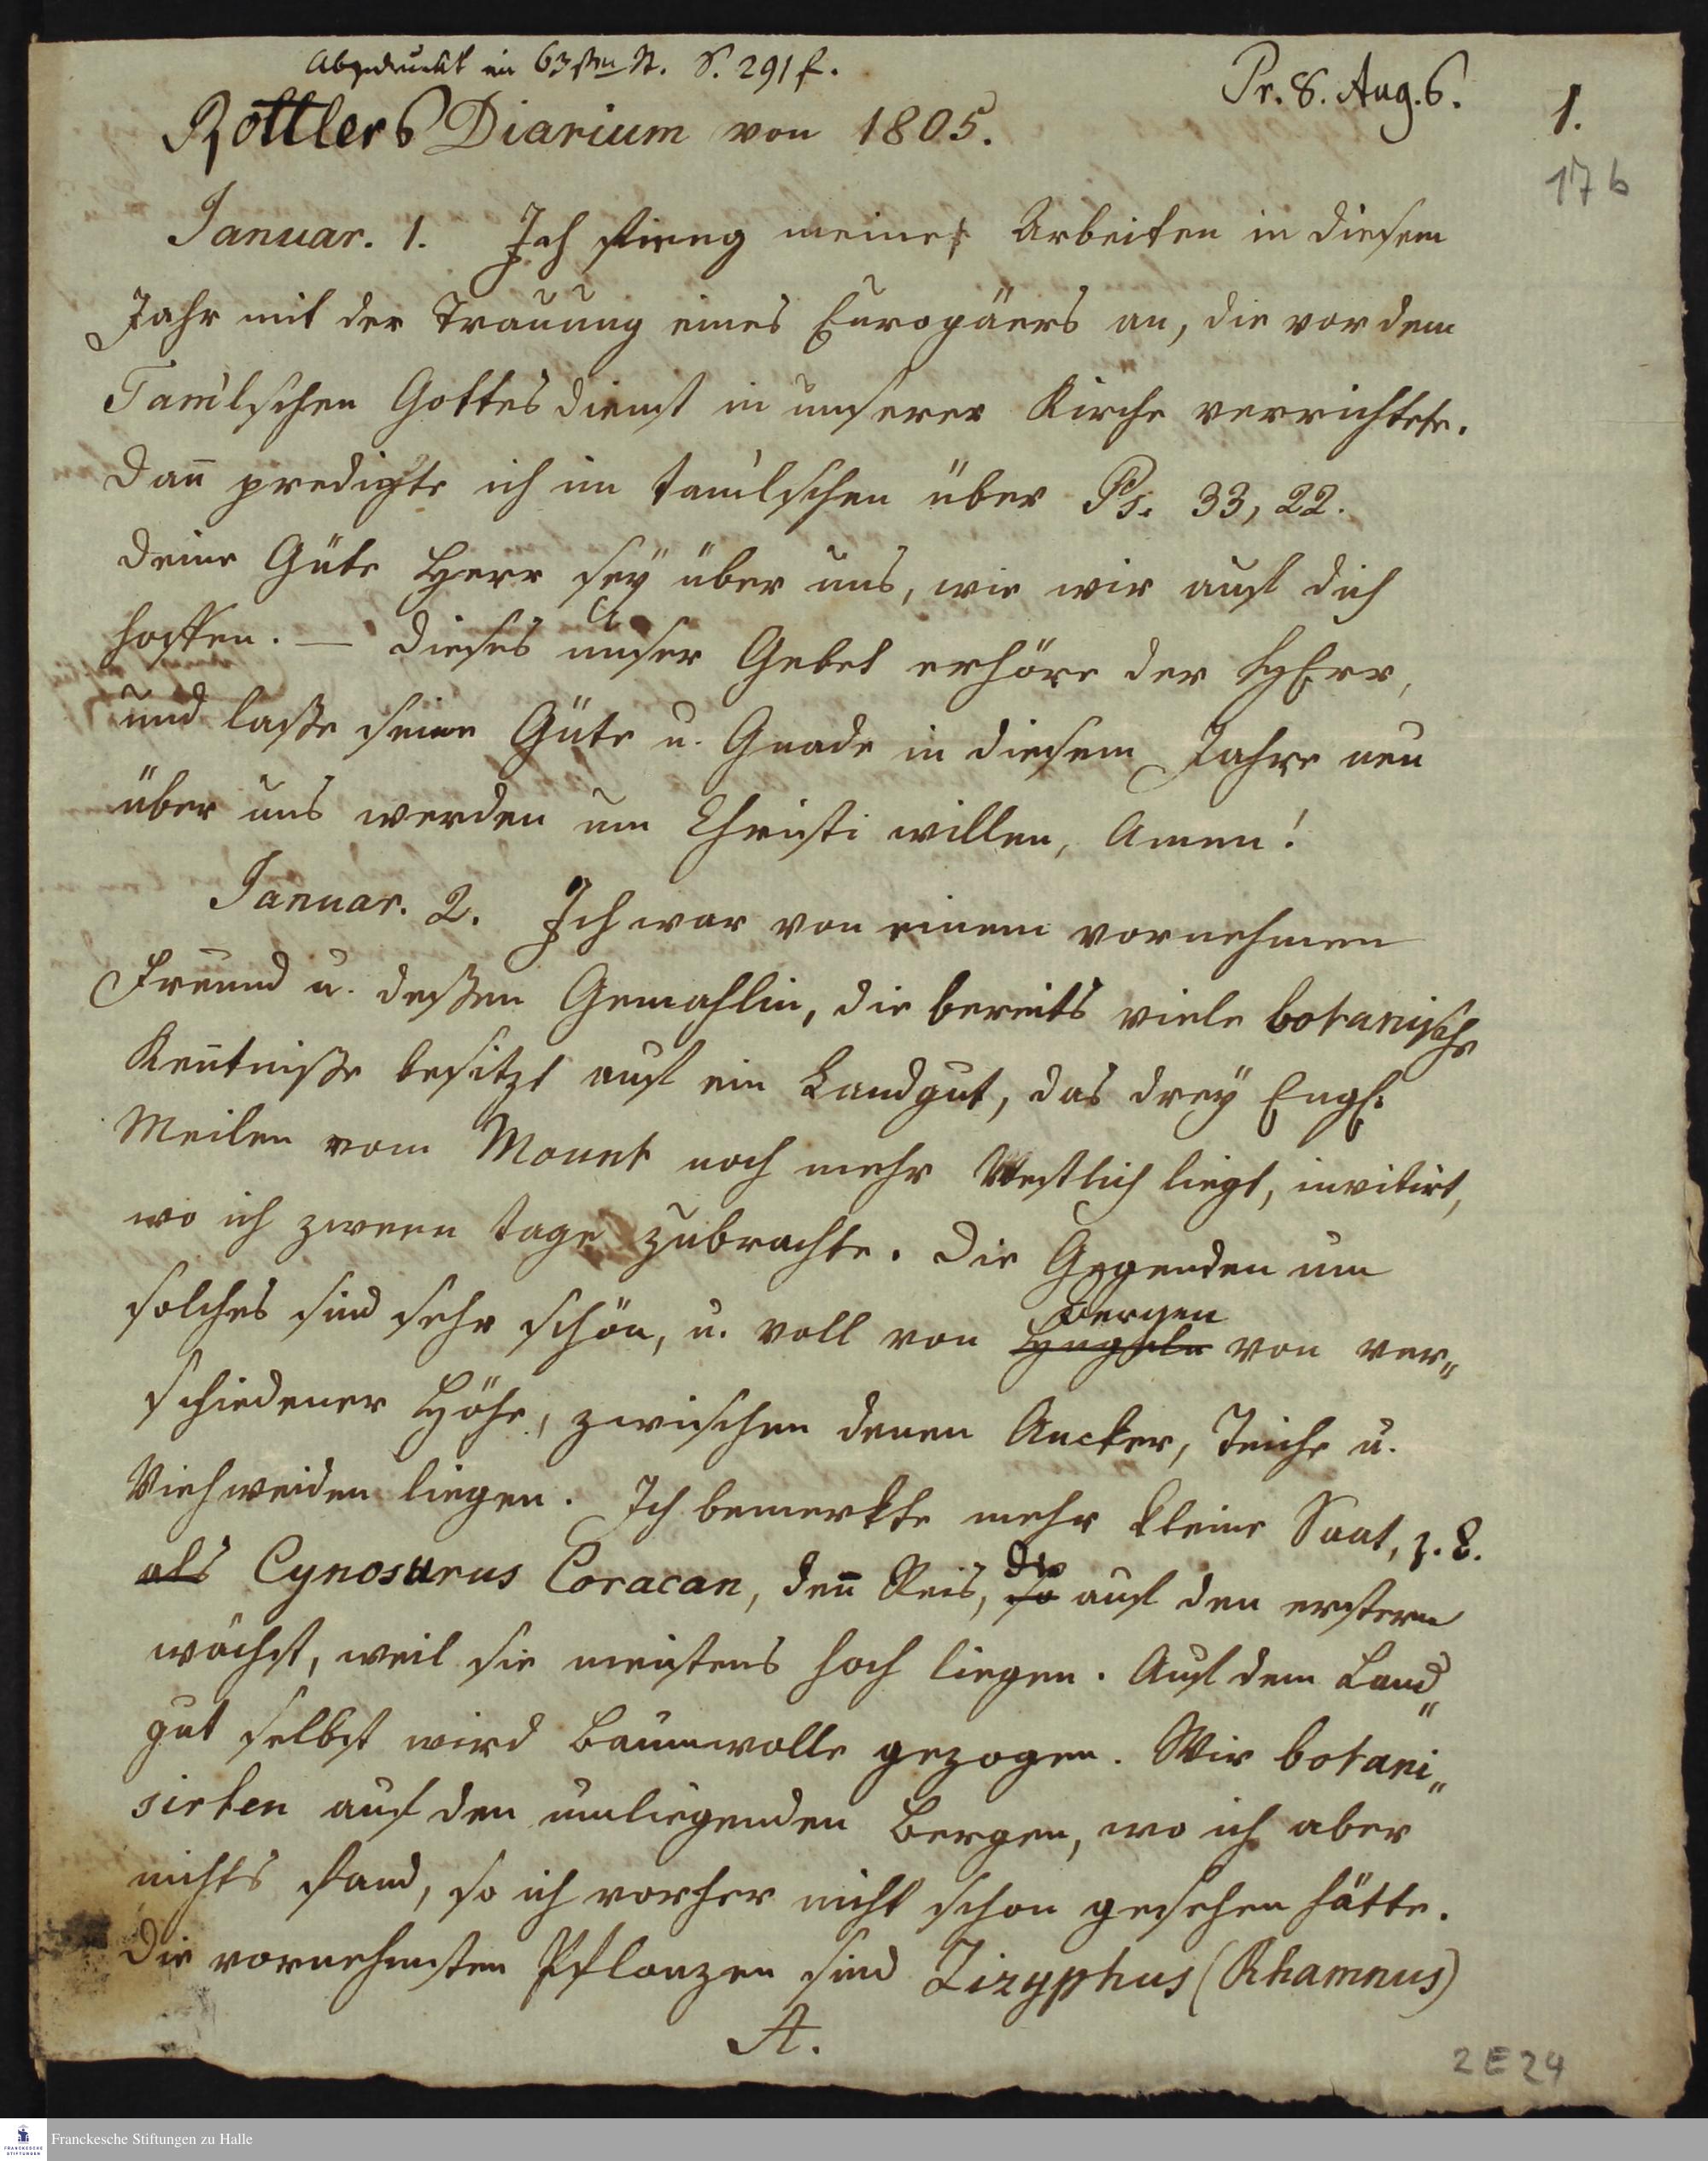 Abgedruckt im 63sten St. S. 291 f.
Pr. 8. Aug. 6.
1.
Rottlers Diarium von 1805.
17 b
Januar. 1. Ich fieng meine Arbeiten in diesem
Jahr mit der Trauung eines Europäers an, die vor dem
Tamulschen Gottesdienst in unserer Kirche verrichtete.
Dan̄ predigte ich im tamulschen über Ps. 33, 22.
Deine Güte Herr seÿ über uns, wie wir auf dich
hoffen. — Dieses unser Gebet erhöre der HErr,
und laße seine Güte u. Gnade in diesem Jahre neu
über uns werden um Christi willen, Amen!
Januar. 2. Ich war von einem vornehmen
Freund u. deßen Gemahlin, die bereits viele botanische
Ken̄tniße besitzt auf ein Landgut, das dreÿ Engl.
Meilen vom Mount noch mehr Westlich liegt, invitirt,
wo ich zween Tage zubrachte. Die Gegenden um
Bergen
solches sind sehr schön, u. voll von Hügeln von ver„
schiedener Höhe, zwischen denen Aecker, Teiche u.
Viehweiden liegen. Ich bemerkte mehr kleine Saat, z. E.
die
als Cynosurus Coracan, den̄ Reis, so auf den erstern
wächst, weil sie meistens hoch liegen. Auf dem Land„
gut selbst wird Baumwolle gezogen. Wir botani„
sirten auf den umliegenden Bergen, wo ich aber
nichts fand, so ich vorher nicht schon gesehen hätte.
Die vornehmsten Pflanzen sind Zizyphus (Rhamnus)
A.
2 E 24
FRANCKESCHE STIFTUNGEN
Franckesche Stiftungen zu Halle